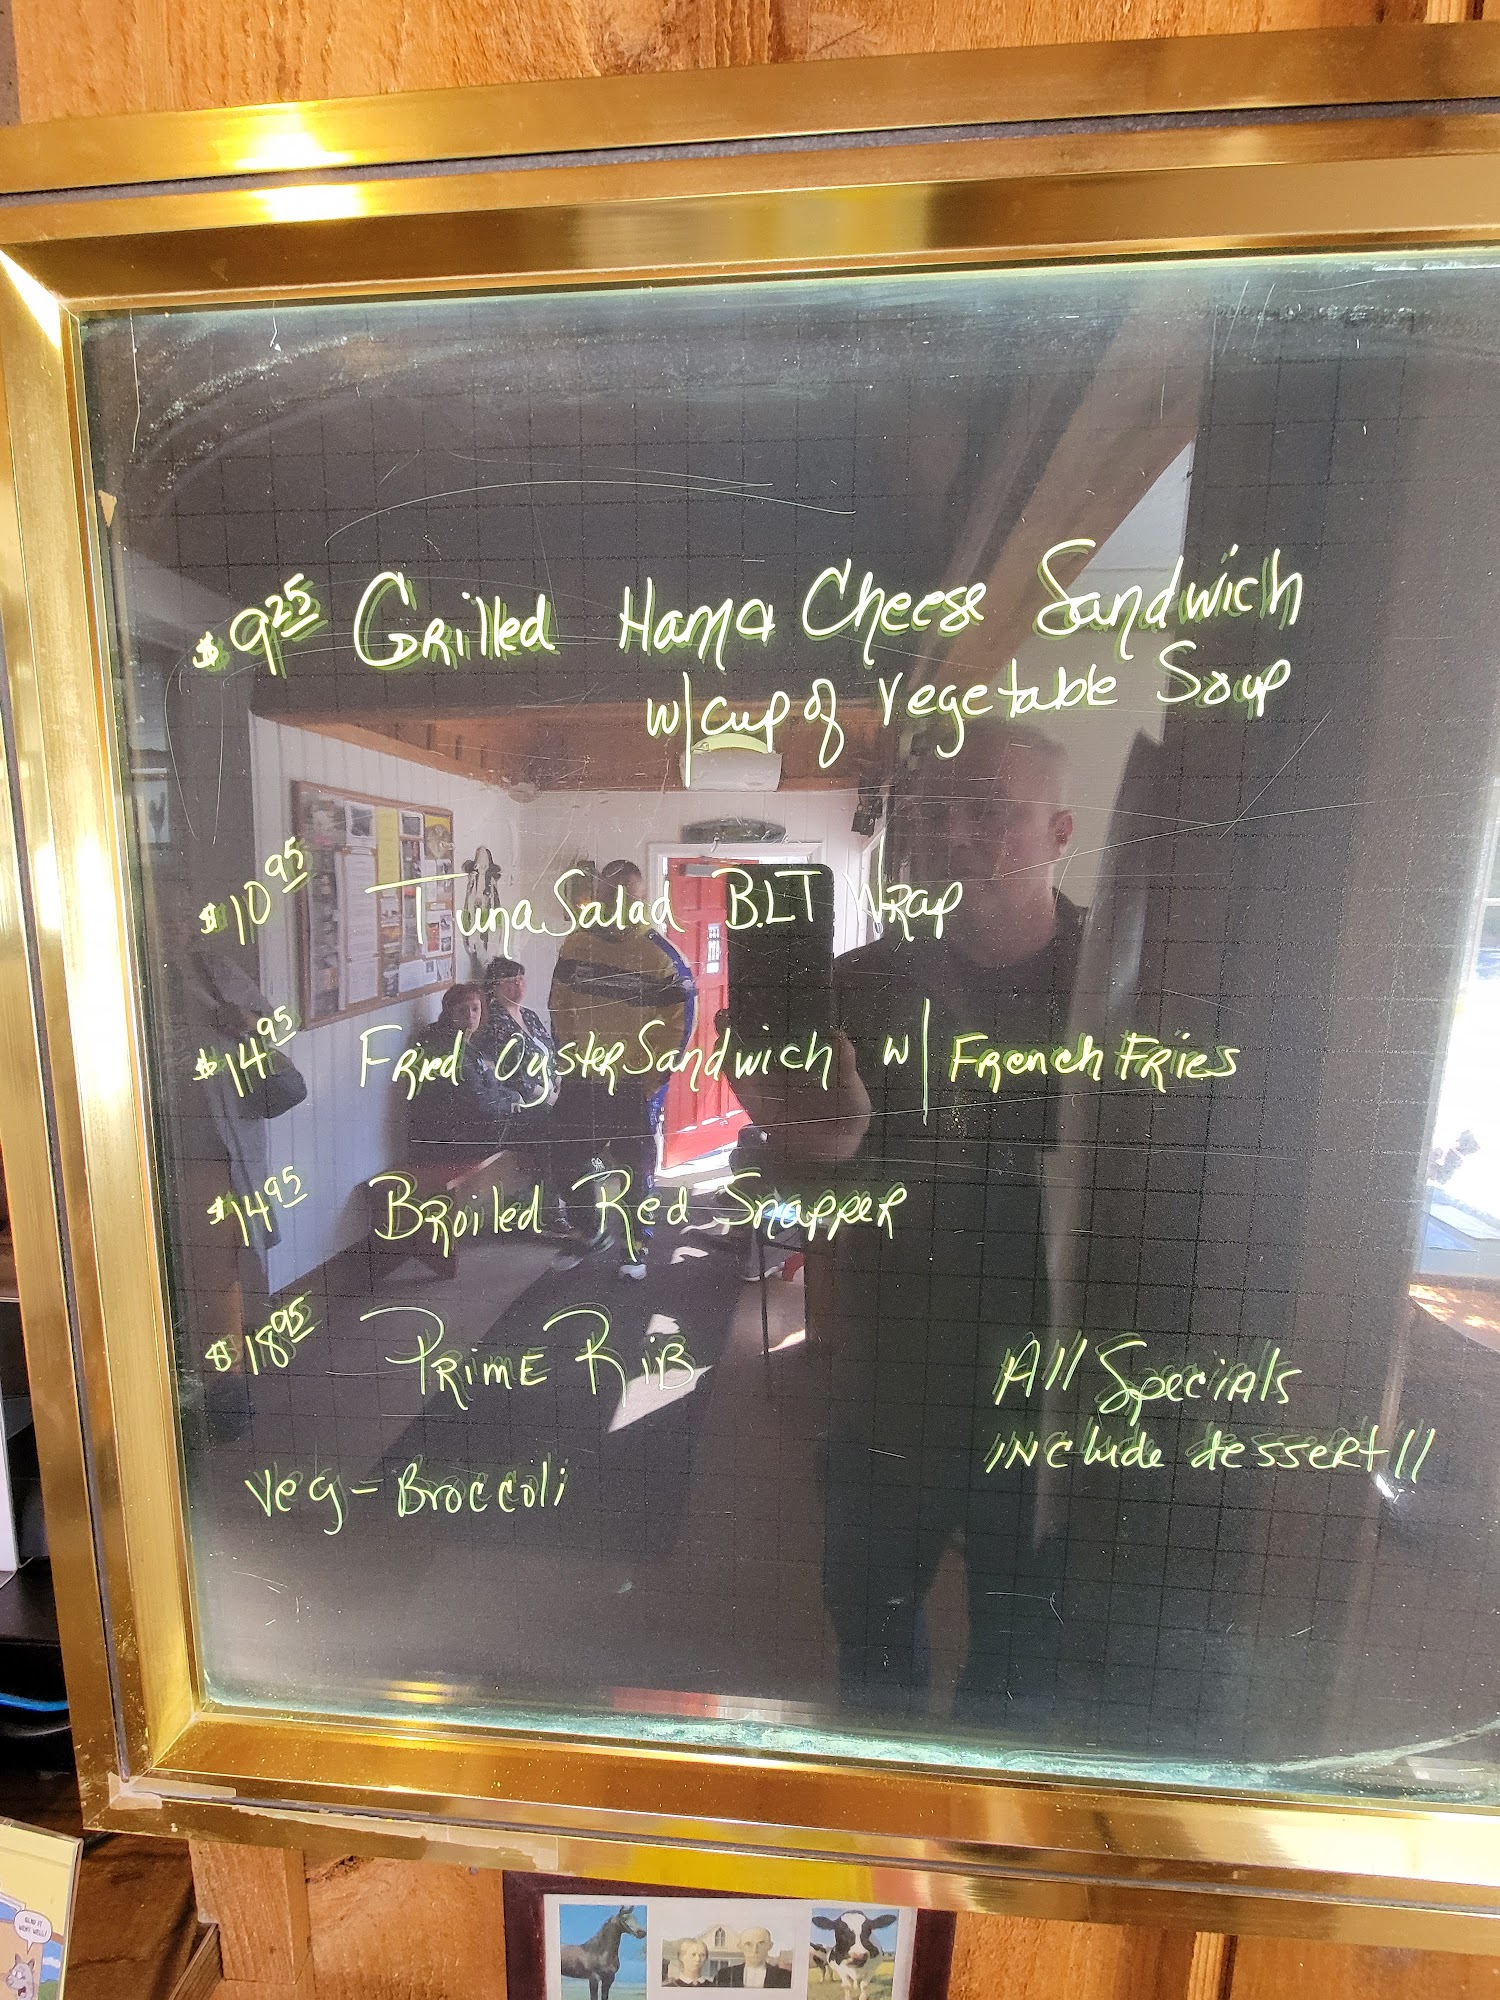 $9.25 Grilled Ham & Cheese Sandwich
w/cup of Vegetable Soup
$10.95 Tuna Salad BLT Wrap
$14.95 Fried Oyster Sandwich w/ French Fries
$14.95 Broiled Red Snapper
$18.95 Prime Rib
All Specials
include dessert!!
Veg - Broccoli